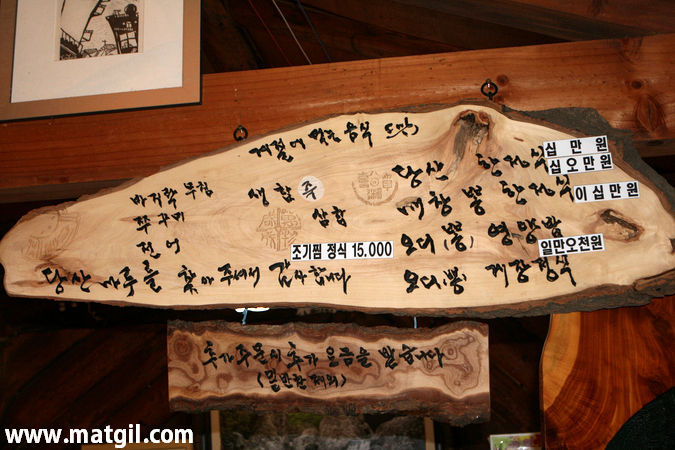 계절에 맞는 음식 도막)
바지락 무침
쭈꾸미
전어
생합 죽
삼합
조기찜 정식 15.000
당산 마루를 찾아주셔서 감사합니다
당산 한정식 십만원
십오만원
고창 뽕 한정식 이십만원
오디(뽕) 영양밥
일만오천원
오디(뽕) 게장정식
추가 주문시 추가 요금을 받습니다
(밑반찬 제외)
www.matgil.com